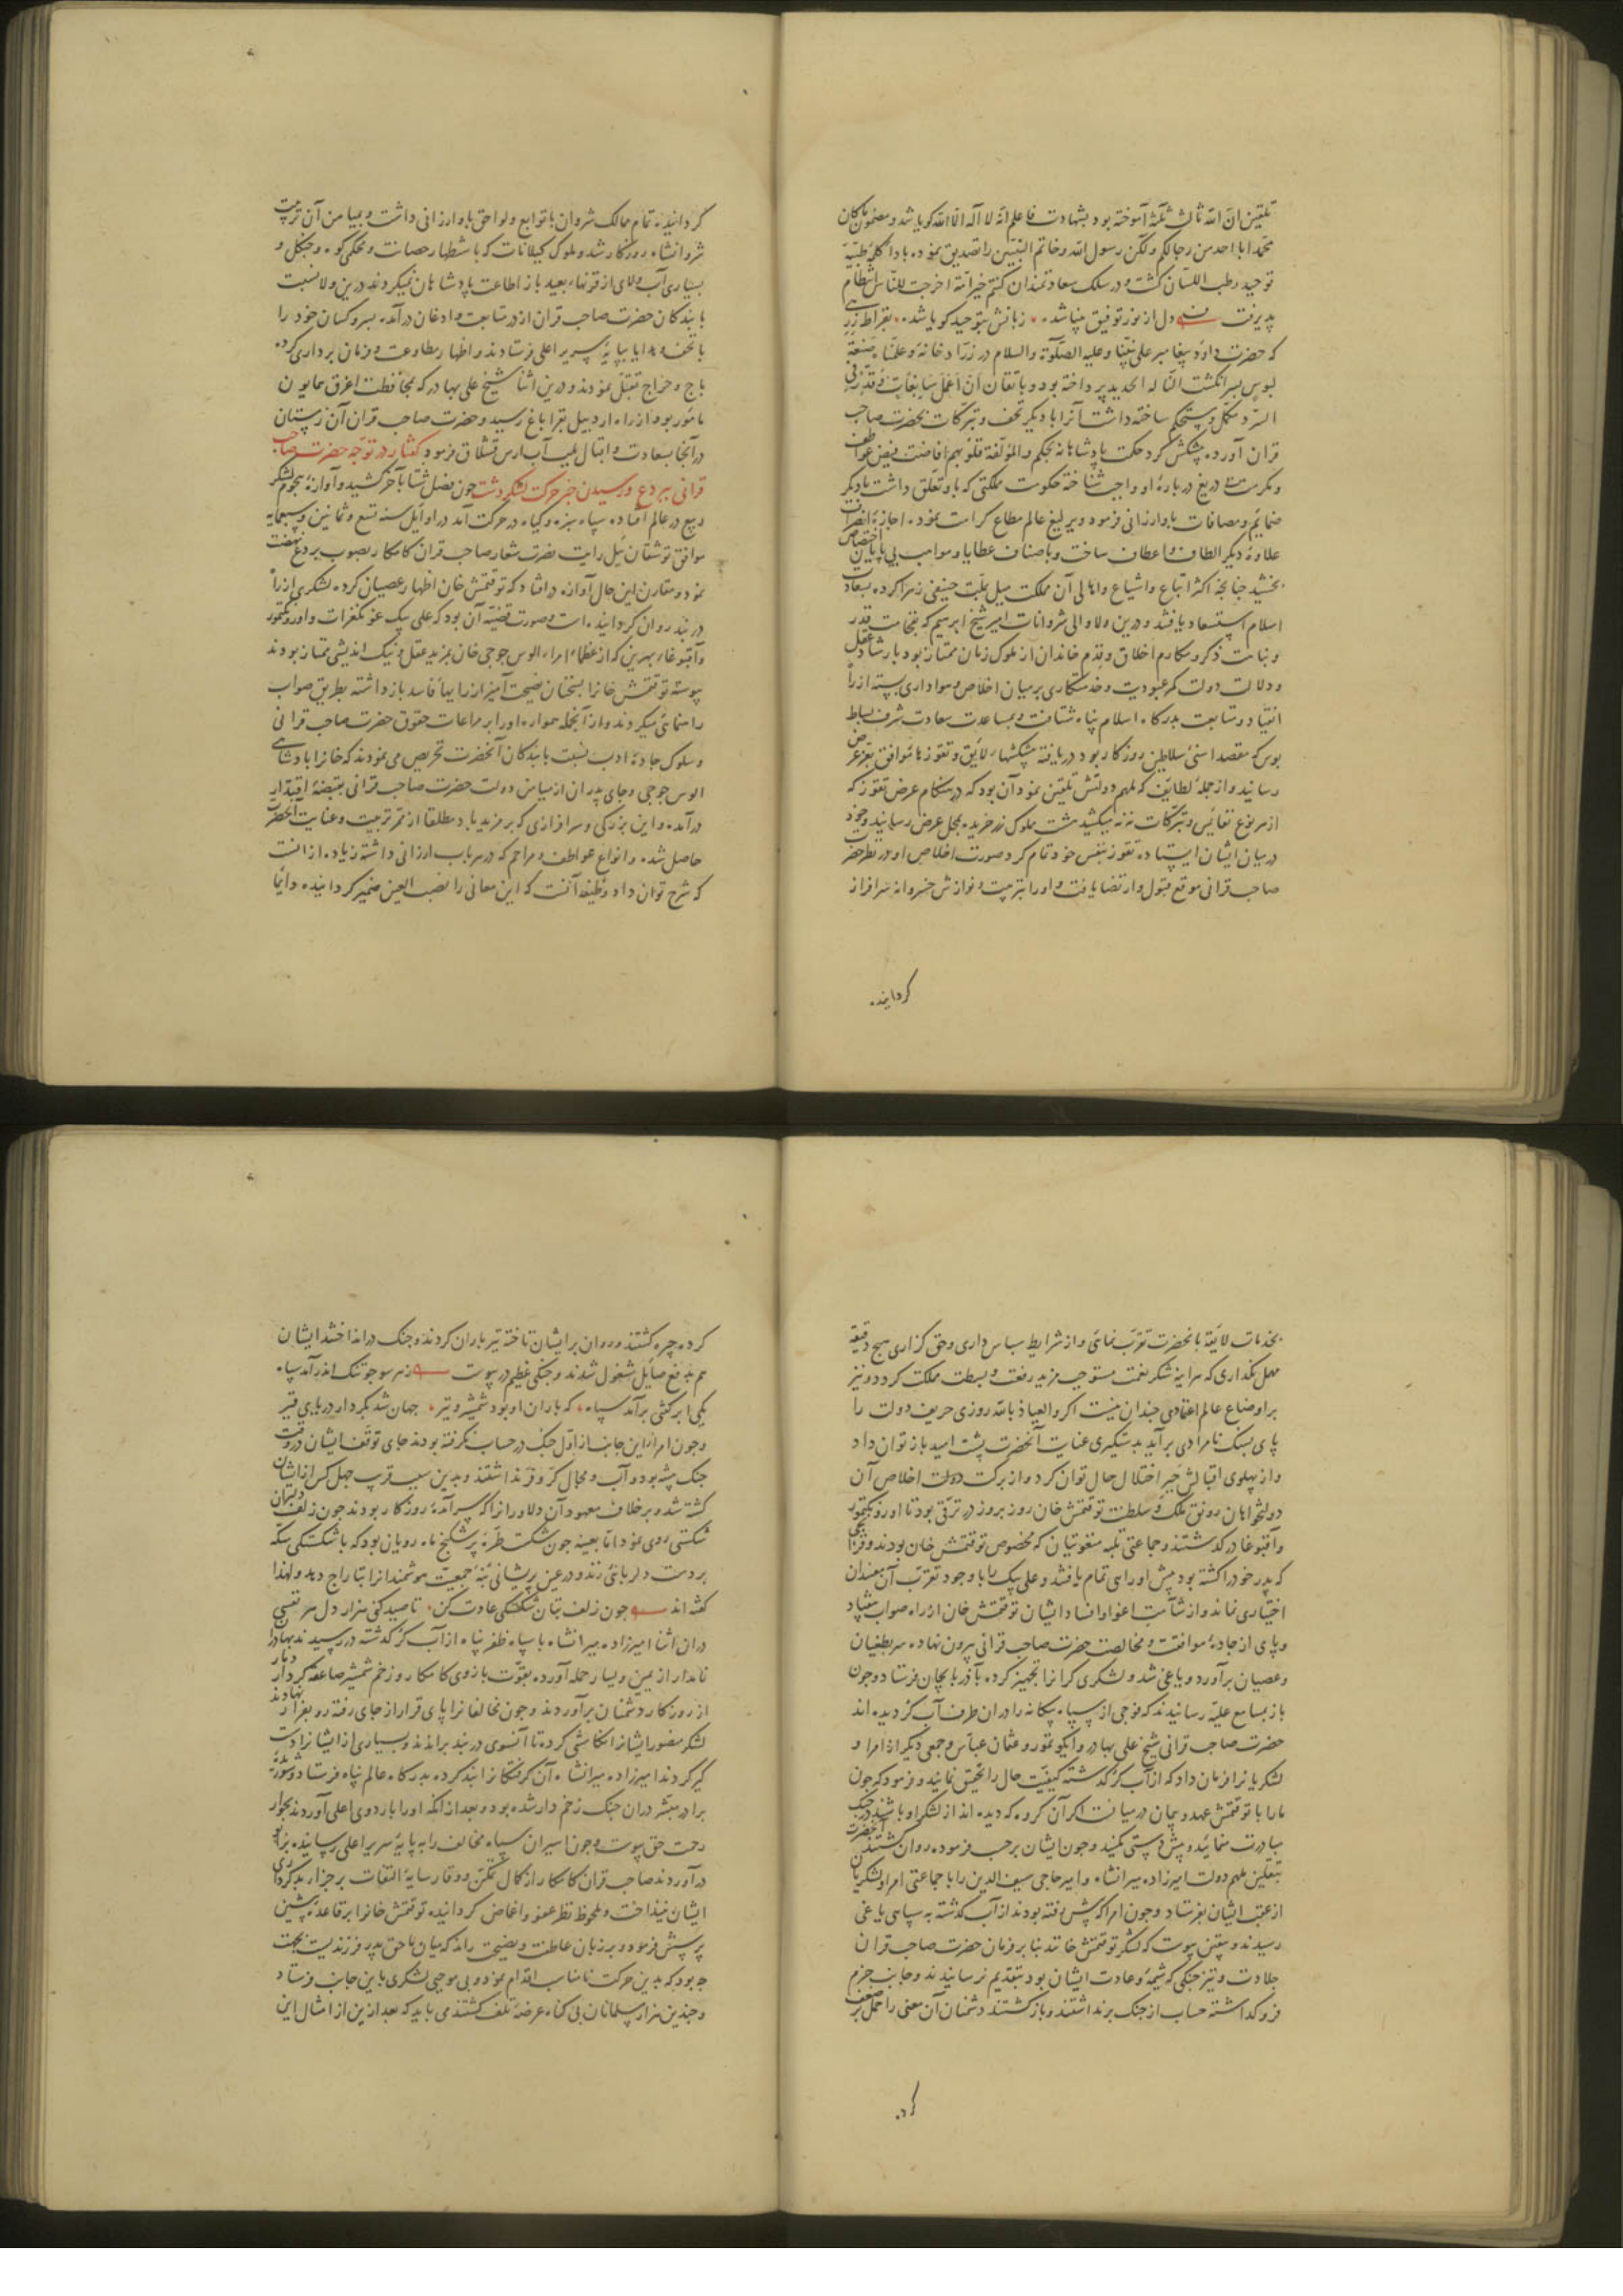 تلقین ان الله ثالث ثلثه آموخته بود بشهادت فاعلم انه لا اله الا الله کویا شد و مضمون ما کان
محمد ابا احد من رجالکم ولکن رسول الله وخاتم النبیین را تصدیق نموده بادا کلمه طیبه
توحید رطب اللسان کشت و در سلک سعادتمندان کنتم خیر امة اخرجت للناس انتظام
پذیرفت دل از نور توفیق بینا شد زبانش بتوحید کویا شد بقراط زرهی
که حضرت داود پیغامبر علی نبینا وعلیه الصلوة والسلام در زرادخانه وعلمناه صنعة
لبوس بسر انکشت النا له الحدید پرداخته بود و باتقان ان اعمل سابغات وقدر فی
السرد مکمل و مستحکم ساخته داشت آنرا با دیکر تحف و تبرکات بحضرت صاحب
قران آورده پیشکش کرد حکمت پادشاهانه بحکم والمؤلفة قلوبهم افاضت فیض عواطف
ومکرمت بی دریغ درباره او واجب شناخته حکومت مملکتی که باو تعلق داشت با دیکر
ضمایم و مضافات باو ارزانی فرمود و یرلیغ عالم مطاع کرامت نموده اجازه انصراف
علاوه دیکر الطاف و اعطاف ساخت و باصناف عطایا و مواهب بی پایان اختصاص
بخشید چنانچه اکثر اتباع و اشیاع و اهالی آن مملکت میل بملت حنیفی زهرا کرده بسعادت
اسلام استسعاد یافتند و درین ولا والی شروانات امیر شیخ ابرهیم که بفخامت قدر
و نباهت ذکر و مکارم اخلاق و قدم خاندان از ملوک زمان ممتاز بود بارشاد عقل
و دلالت دولت کمر عبودیت و خدمتکاری بر میان اخلاص و هواداری بسته از راه
انقیاد و متابعت بدرکاه اسلام پناه شتافت و بمساعدت سعادت شرف بساط
بوس که مقصد اسنی سلاطین روزکار بود دریافته پیشکشهاء لایق و تقوزهاء موافق بعز عرض
رسانید و از جمله لطایف که ملهم دولتش تلقین نمود آن بود که در هنکام عرض تقوز که
از هر نوع نفائس و تبرکات نه نه میکشید هشت مملوک زر خریده بمحل عرض رسانید و خود
در میان ایشان ایستاده تقوز بنفس خود تمام کرد و صورت اخلاص او در نظر حضرت
صاحب قرانی موقع قبول و ارتضا یافت و او را بتربیت و نوازش خسروانه سرافراز
کردانیده
کردانیده تمام ممالک شروان با توابع و لواحق باو ارزانی داشت و بمیامن آن تربیت
شروانشاه روزکار شد و ملوک کیلانات که باستظهار حصانت و محکمی کوه و جنکل و
بسیاری آب ولای از قرنهاء بعید باز اطاعت پادشاهان نمیکردند درین ولا نسبت
با بندکان حضرت صاحب قران از در متابعت و اذعان درآمده پسر و کسان خود را
با تحف و هدایا بپایه سریر اعلی فرستادند و اظهار مطاوعت و فرمان برداری کرده
باج و خراج تقبل نمودند و درین اثنا شیخ علی بهادر که بمحافظت اغرق همایون
مامور بود از راه اردبیل بقراباغ رسید و حضرت صاحب قران آن زمستان
در آنجا بسعادت و اقبال بلب آب ارس قشلاق فرمود کفتار در توجه حضرت صاحب
قرانی ببردع و رسیدن خبر حرکت لشکر دشت چون فصل شتا بآخر کشید و آوازه هجوم لشکر
ربیع در عالم افتاده سپاه سبزه و کیاه در حرکت آمد در اوایل سنه تسع و ثمانین وسبعمایه
موافق توشقان ئیل رایت نصرت شعار صاحب قران کامکار بصوب بردع نهضت
نمود و مقارن این حال آوازه درافتاد که توقتمش خان اظهار عصیان کرده لشکری از راه
دربند روان کردانیده است و صورت قضیه آن بود که علی بیک غونکقرات و اورونکتمور
وآقبوغاء بهرین که از عظماء امراء الوس جوجی خان بمزید عقل و نیک اندیشی ممتاز بودند
پیوسته توقتمش خانرا بسخنان نصیحت آمیز از رایهاء فاسد باز داشته بطریق صواب
راهنمائی میکردند و از آنجمله همواره او را بر مراعات حقوق حضرت صاحب قرانی
و سلوک جاده ادب نسبت با بندکان آنحضرت تحریص می نمودند که خانرا پادشاهی
الوس جوجی و جای پدران از میامن دولت حضرت صاحب قرانی بقبضه اقتدار
درآمده و این بزرکی و سرافرازی که بر مزید باد مطلقا از ثمر تربیت و عنایت آنحضرت
حاصل شده و انواع عواطف و مراحم که در هر باب ارزانی داشته زیاده از آنست
که شرح توان داد وظیفه آنست که این معانی را نصب العین ضمیر کردانیده دایما
بخدمات لایقه بآنحضرت تقرب نمائی و از شرایط سپاس داری و حق کزاری هیچ دقیقه
مهمل نکذاری که هر اینه شکر نعمت مستوجب مزید رفعت و بسطت مملکت کردد و نیز
بر اوضاع عالم اعتمادی چندان نیست اکر والعیاذ بالله روزی حریف دولت را
پای بسنک نامرادی برآید بدستکیری عنایت آنحضرت پشت امید باز توان داد
و از پهلوی اقبالش جبر اختلال حال توان کرد و از برکت دولت اخلاص آن
دولتخواهان رونق ملک و سلطنت توقتمش خان روز بروز در ترقی بود تا اورونکتمور
وآقبوغا درکذشتند و جماعتی تلبه منغوتیان که مخصوص توقتمش خان بودند و قزانچی
که پدر خود را کشته بود پیش او راهی تمام یافتند و علی بیک را با وجود تقرب آن مفسدان
اختیاری نماند و از شآمت اغوا و افساد ایشان توقتمش خان از راه صواب بیفتاد
و پای از جاده موافقت و مخالصت حضرت صاحب قرانی بیرون نهاده سر بطغیان
و عصیان برآورد و یاغی شد و لشکری کرانرا تجهیز کرده بآذربایجان فرستاد و چون
باز بمسامع علیه رسانیدند که فوجی از سپاه بیکانه را در ان طرف آب کر دیده اند
حضرت صاحب قرانی شیخ علی بهادر وایکو تمور و عثمان عباس و جمعی دیکر از امرا و
لشکریانرا فرمان داد که از آب کر کذشته کیفیت حال را تحقیق نمایند و فرمود که چون
مارا با توقتمش عهد و پیمان در میانست اکر آن کروه که دیده اند از لشکر او باشند در جنک
مبادرت منمائید و پیش دستی مکنید و چون ایشان برحسب فرموده روان کشتند آنحضرت
بتلقین ملهم دولت امیرزاده میرانشاه و امیر حاجی سیف الدین را با جماعتی امرا و لشکریان
از عقب ایشان بفرستاد و چون امرا که پیش رفته بودند از آب کذشته به سپاهی یاغی
رسیدند و بیقین پیوست که لشکر توقتمش خانند بنابر فرمان حضرت صاحب قران
جلادت و تیز جنکی که شیمه و عادت ایشان بود بتقدیم نرسانیدند و جانب حزم
فروکذاشته حساب از جنک برنداشتند و باز کشتند دشمنان آن معنی را حمل بر ضعف
کرده
کرده چیره کشتند و روان بر ایشان تاخته تیرباران کردند و جنک درانداختند ایشان
هم بدفع صایل مشغول شدند و جنکی عظیم در پیوست ز هر سو جو تنک اندر آمد سپاه
یکی ابر کشی برآمد سیاه که باران او بود شمشیر و تیر جهان شد بکردار دریای قیر
وچون امرا از این جانب از اول جنک در حساب نکرفته بودند جای توقف ایشان در وقت
جنک بیشه بود و آب و مجال کر و فر نداشتند و بدین سبب قریب چهل کس از ایشان
کشته شد و برخلاف معهود آن دلاورانرا که سرآمده روزکار بودند چون زلف دلبران
شکستی روی نمود اما بعینه چون شکست طره پرشکنج ماه رویان بود که باشکستکی سکه
بر دست دلربائی زند و در عین پریشانی بنه جمعیت هوشمندانرا بتاراج دهد ولهذا
کفته اند چون زلف بتان شکستکی عادت کن تا صید کنی هزار دل هر نفسی
در ان اثنا امیرزاده میرانشاه با سپاه ظفر پناه از آب کر کذشته در رسیدند بهادران
نامدار از یمین و یسار حمله آورده بقوت بازوی کامکار و زخم شمشیر صاعقه کردار دمار
از روزکار دشمنان برآوردند و چون مخالفانرا پای قرار از جای رفته رو بفرار نهادند
لشکر منصور ایشانرا تکامشی کرده تا آنسوی دربند براندند و بسیاری از ایشانرا دست
کیر کردند امیرزاده میرانشاه آن کرفتکانرا بند کرده بدرکاه عالم پناه فرستاد و شوریده
برادر مبشر در ان جنک زخم دار شده بود و بعد از آنکه او را باردوی اعلی آوردند بجوار
رحمت حق پیوست و چون اسیران سپاه مخالف را به پایه سریر اعلی رسانیده بزانو
درآوردند صاحب قران کامکار از کمال تمکن و وقار سایه التفات بر جزاء بدکرداری
ایشان نینداخت و ملحوظ نظر عفو و اغماض کردانیده توقتمش خانرا برقاعده پیشین
پرسش فرمود و بر زبان عاطفت و نصیحت راند که میان ما حق پدر فرزندیست بجهت
چه بود که بدین حرکت نامناسب اقدام نمود و بی موجبی لشکری باین جانب فرستاد
و چندین هزار مسلمانان بی کناه عرضه تلف کشتند می باید که بعد ازین از امثال این